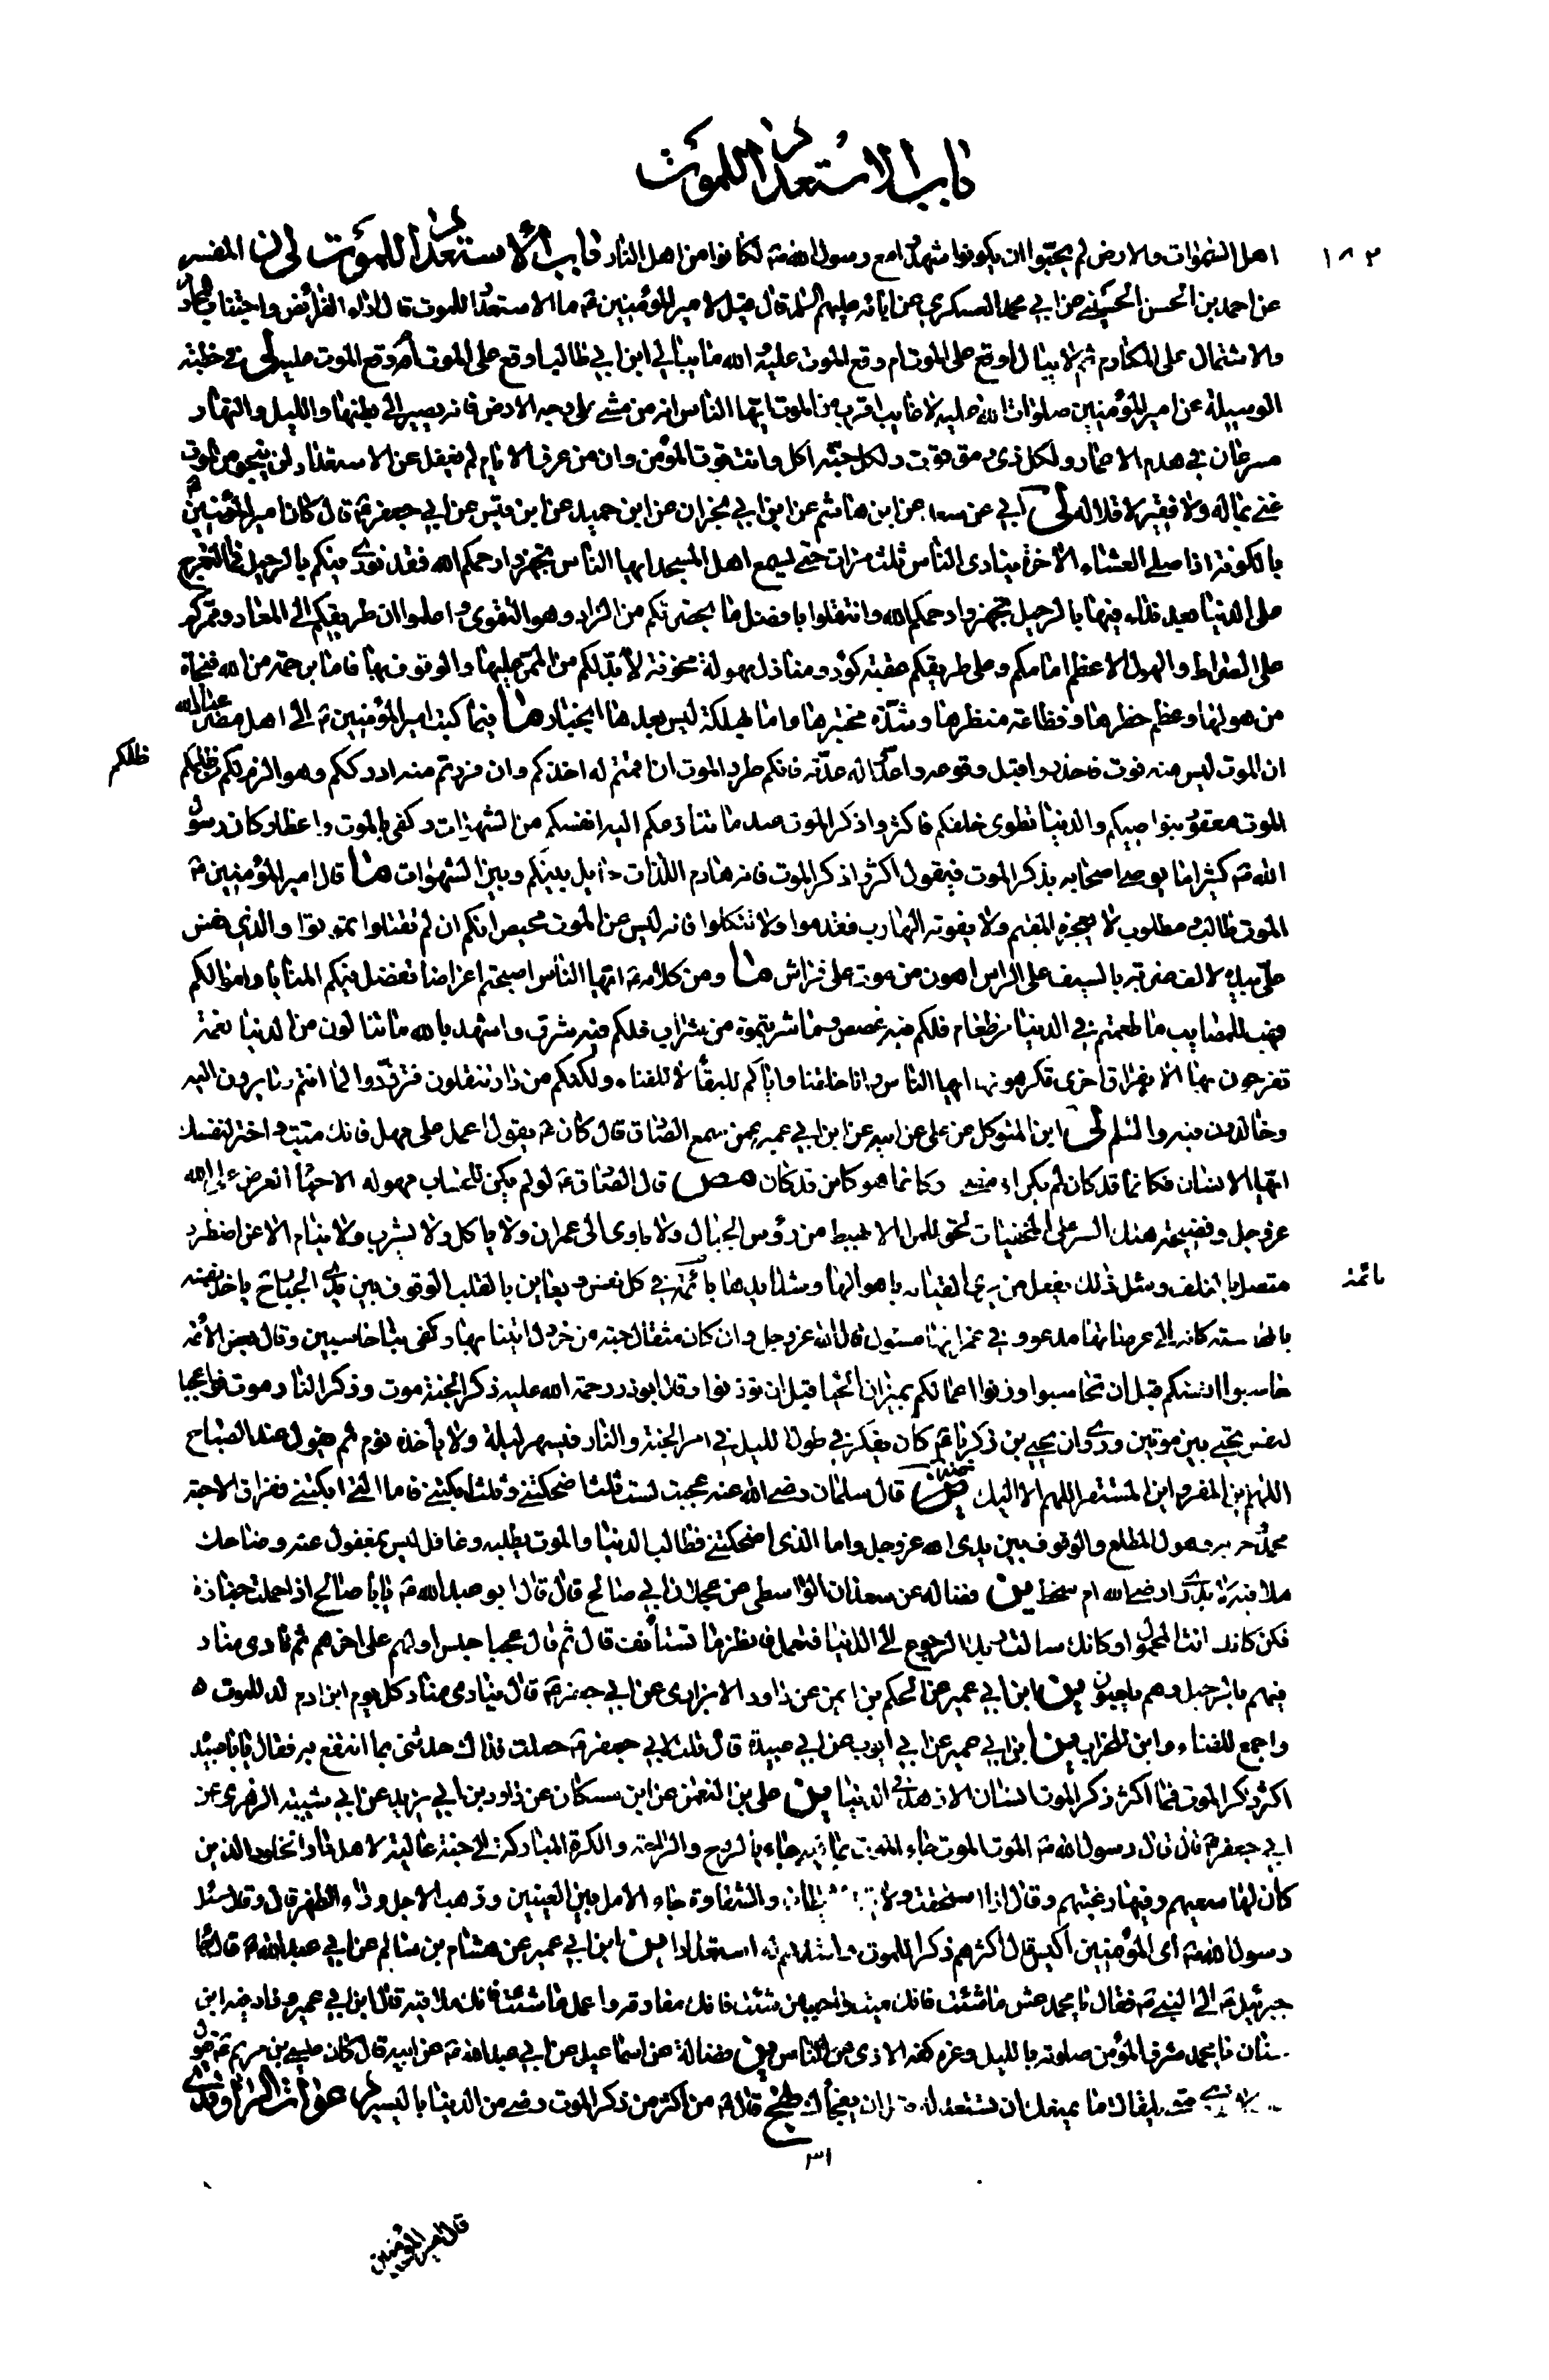 باب الاستعداد للموت
١٨٢
اهل السموات والارض لم يحبوا ان يكونوا شهدوا مع رسول الله ص لكانوا من اهل النار باب الاستعداد للموت لى ن المفسر
عن احمد بن الحسن الحسيني عن ابي محمد العسكري عن ابائه عليهم السلم قال قيل لامير المؤمنين ع ما الاستعداد للموت قال اداء الفرائض واجتناب المحارم
والاشتمال على المكارم ثم لا يبالي اوقع على الموت ام وقع الموت عليه والله ما يبالي ابن ابي طالب اوقع على الموت ام وقع الموت عليه لى في خطبة
الوسيلة عن امير المؤمنين صلوات الله عليه لا غايب اقرب من الموت ايها الناس انه من مشى على وجه الارض فانه يصير الى بطنها والليل والنهار
مسرعان في هدم الاعمار ولكل ذي رمق قوت ولكل حبة اكل وانت قوت الموت وان من عرف الايام لم يغفل عن الاستعداد لن ينجو من الموت
غني بماله ولا فقير لاقلاله لى ابي عن سعد عن ابن هاشم عن ابن ابي نجران عن ابن حميد عن ابن قيس عن ابي جعفر ع قال كان امير المؤمنين ع
بالكوفة اذا صلى العشاء الاخرة ينادي الناس ثلث مرات حتى يسمع اهل المسجد ايها الناس تجهزوا رحمكم الله فقد نودي فيكم بالرحيل فما التعرج
على الدنيا بعد نداء فيها بالرحيل تجهزوا رحمكم الله وانتقلوا بافضل ما بحضرتكم من الزاد وهو التقوى واعلموا ان طريقكم الى المعاد وممركم
على الصراط والهول الاعظم امامكم وعلى طريقكم عقبة كؤد ومنازل مهولة مخوفة لا بد لكم من الممر عليها والوقوف بها فاما برحمة من الله فنجاة
من هولها وعظم خطرها وفظاعة منظرها وشدة مختبرها واما بهلكة ليس بعدها انجبار ما فيما كتب امير المؤمنين ع الى اهل مصر عباد الله
ان الموت ليس منه فوت فاحذروا قبل وقوعه واعدوا له عدته فانكم طرد الموت ان اقمتم له اخذكم وان فررتم منه ادرككم وهو الزم لكم من ظلكم
ظلكم
الموت معقود بنواصيكم والدنيا تطوى خلفكم فاكثروا ذكر الموت عند ما تنازعكم اليه انفسكم من الشهوات وكفى بالموت واعظا وكان رسول
الله ص كثيرا ما يوصي اصحابه بذكر الموت فيقول اكثروا ذكر الموت فانه هادم اللذات حائل بينكم وبين الشهوات ما قال امير المؤمنين ع
الموت طالب ومطلوب لا يعجزه المقيم ولا يفوته الهارب فقدموا ولا تتكلوا فانه ليس عن الموت محيص انكم ان لم تقتلوا تموتوا والذي نفس
علي بيده لالف ضربة بالسيف على الراس اهون من موت على فراش ما ومن كلامه ع ايها الناس اصبحتم اغراضا تنتضل فيكم المنايا واموالكم
نهب للمصايب ما طعمتم في الدنيا من طعام فلكم فيه غصص وما شربتموه من شراب فلكم فيه شرق واشهد بالله ما تنالون من الدنيا نعمة
تفرحون بها الا بفراق اخرى تكرهونها ايها الناس انا خلقنا واياكم للبقاء لا للفناء ولكنكم من دار تنقلون فتزودوا لما انتم صايرون اليه
وخالدون فيه والسلم لى ابن المتوكل عن علي عن ابيه عن ابن ابي عمير عمن سمع الصادق قال كان ع يقول اعمل على مهل فانك ميت واختر لنفسك
ايها الانسان فكانما قد كان لم يك اذ مضى وكانما هو كاين قد كان مص قال الصادق ع لو لم يكن للحساب مهولة الا حياء العرض على الله
عز وجل وفضيحة هتك الستر على المخفيات لحق للمرء الا يهبط من رؤس الجبال ولا ياوى الى عمران ولا ياكل ولا يشرب ولا ينام الا عن اضطرار
متصل بالتلف ومثل ذلك يفعل من يرى القيامة باهوالها وشدايدها قائمة في كل نفس ويعاين بالقلب الوقوف بين يدي الجبار ح ياخذ نفسه
قائمة
بالمحاسبة كانه الى عرصاتها مدعو وفي غمراتها مسئول قال الله عز وجل وان كان مثقال حبة من خردل اتينا بها وكفى بنا حاسبين وقال بعض الائمة
حاسبوا انفسكم قبل ان تحاسبوا وزنوا اعمالكم بميزان الحياء قبل ان توزنوا وقال ابوذر رحمة الله عليه ذكر الجنة موت وذكر النار موت فواعجبا
لنفس يحيى بين موتين وروي ان يحيى بن زكريا ع كان يفكر في طول الليل في امر الجنة والنار فيسهر ليلة ولا يأخذه نوم ثم يقول عند الصباح
اللهم اين المفر واين المستقر اللهم الا اليك قال سلمان رضي الله عنه عجبت لست ثلث اضحكتني وثلث ابكتني فاما التي ابكتني ففراق الاحبة
محمد وحزبه وهول المطلع والوقوف بين يدي الله عز وجل واما الذي اضحكتني فطالب الدنيا والموت يطلبه وغافل ليس بمغفول عنه وضاحك
ملا فيه لا يدري ارضي الله ام سخط ين فضالة عن سعدان الواسطي عن عجلان ابي صالح قال قال ابو عبد الله ع يابا صالح اذا حملت جنازة
فكن كانك انت المحمول او كانك سالت ربك الرجوع الى الدنيا فتعمل فانظر ما تستأنف قال ثم قال عجبا حبس اولهم على اخرهم ثم نادى مناد
فيهم بالرحيل وهم يلعبون ين ابن ابي عمير عن الحكم بن ايمن عن داود الابزاري عن ابي جعفر ع قال ينادي مناد كل يوم ابن ادم لد للموت
واجمع للفناء وابن للخراب ين ابن ابي عمير عن ابي ايوب عن ابي عبيدة قال قلت لابي جعفر ع جعلت فداك حدثني بما انتفع به فقال يابا عبيدة
اكثر ذكر الموت فما اكثر ذكر الموت انسان الا زهد في الدنيا ين علي بن النعمن عن ابن مسكان عن داود بن ابي يزيد عن ابي شيبة الزهري عن
ابي جعفر ع قال قال رسول الله ص الموت الموت جاء الموت بما فيه جاء بالروح والراحة والكرة المباركة الى جنة عالية لاهل دار الخلود الذين
كان لها سعيهم وفيها رغبتهم وقال اذا استحقت ولاية الشيطان والشقاوة جاء الامل بين العينين وذهب الاجل وراء الظهر قال وقال سئل
رسول الله ص اى المؤمنين اكيس قال اكثرهم ذكرا للموت واشدهم له استعدادا ين ابن ابي عمير عن هشام بن سالم عن ابي عبد الله ع قال جاء
جبرئيل ع الى النبي ص فقال يا محمد عش ما شئت فانك ميت واحبب من شئت فانك مفارقه واعمل ما شئت فانك ملاقيه قال ابن ابي عمير وزاد فيه ابن
سنان يا محمد شرف المؤمن صلوته بالليل وعزه كفه الاذى عن الناس ين فضالة عن اسماعيل عن ابي عبد الله ع عن ابيه قال كان عيسى بن مريم ع يقول
متى يلقاك ما يمنعك ان تستعد له قبل ان يفجأك نهج قال ع من اكثر من ذكر الموت رضي من الدنيا باليسير
٣١
قال امير المؤمنين